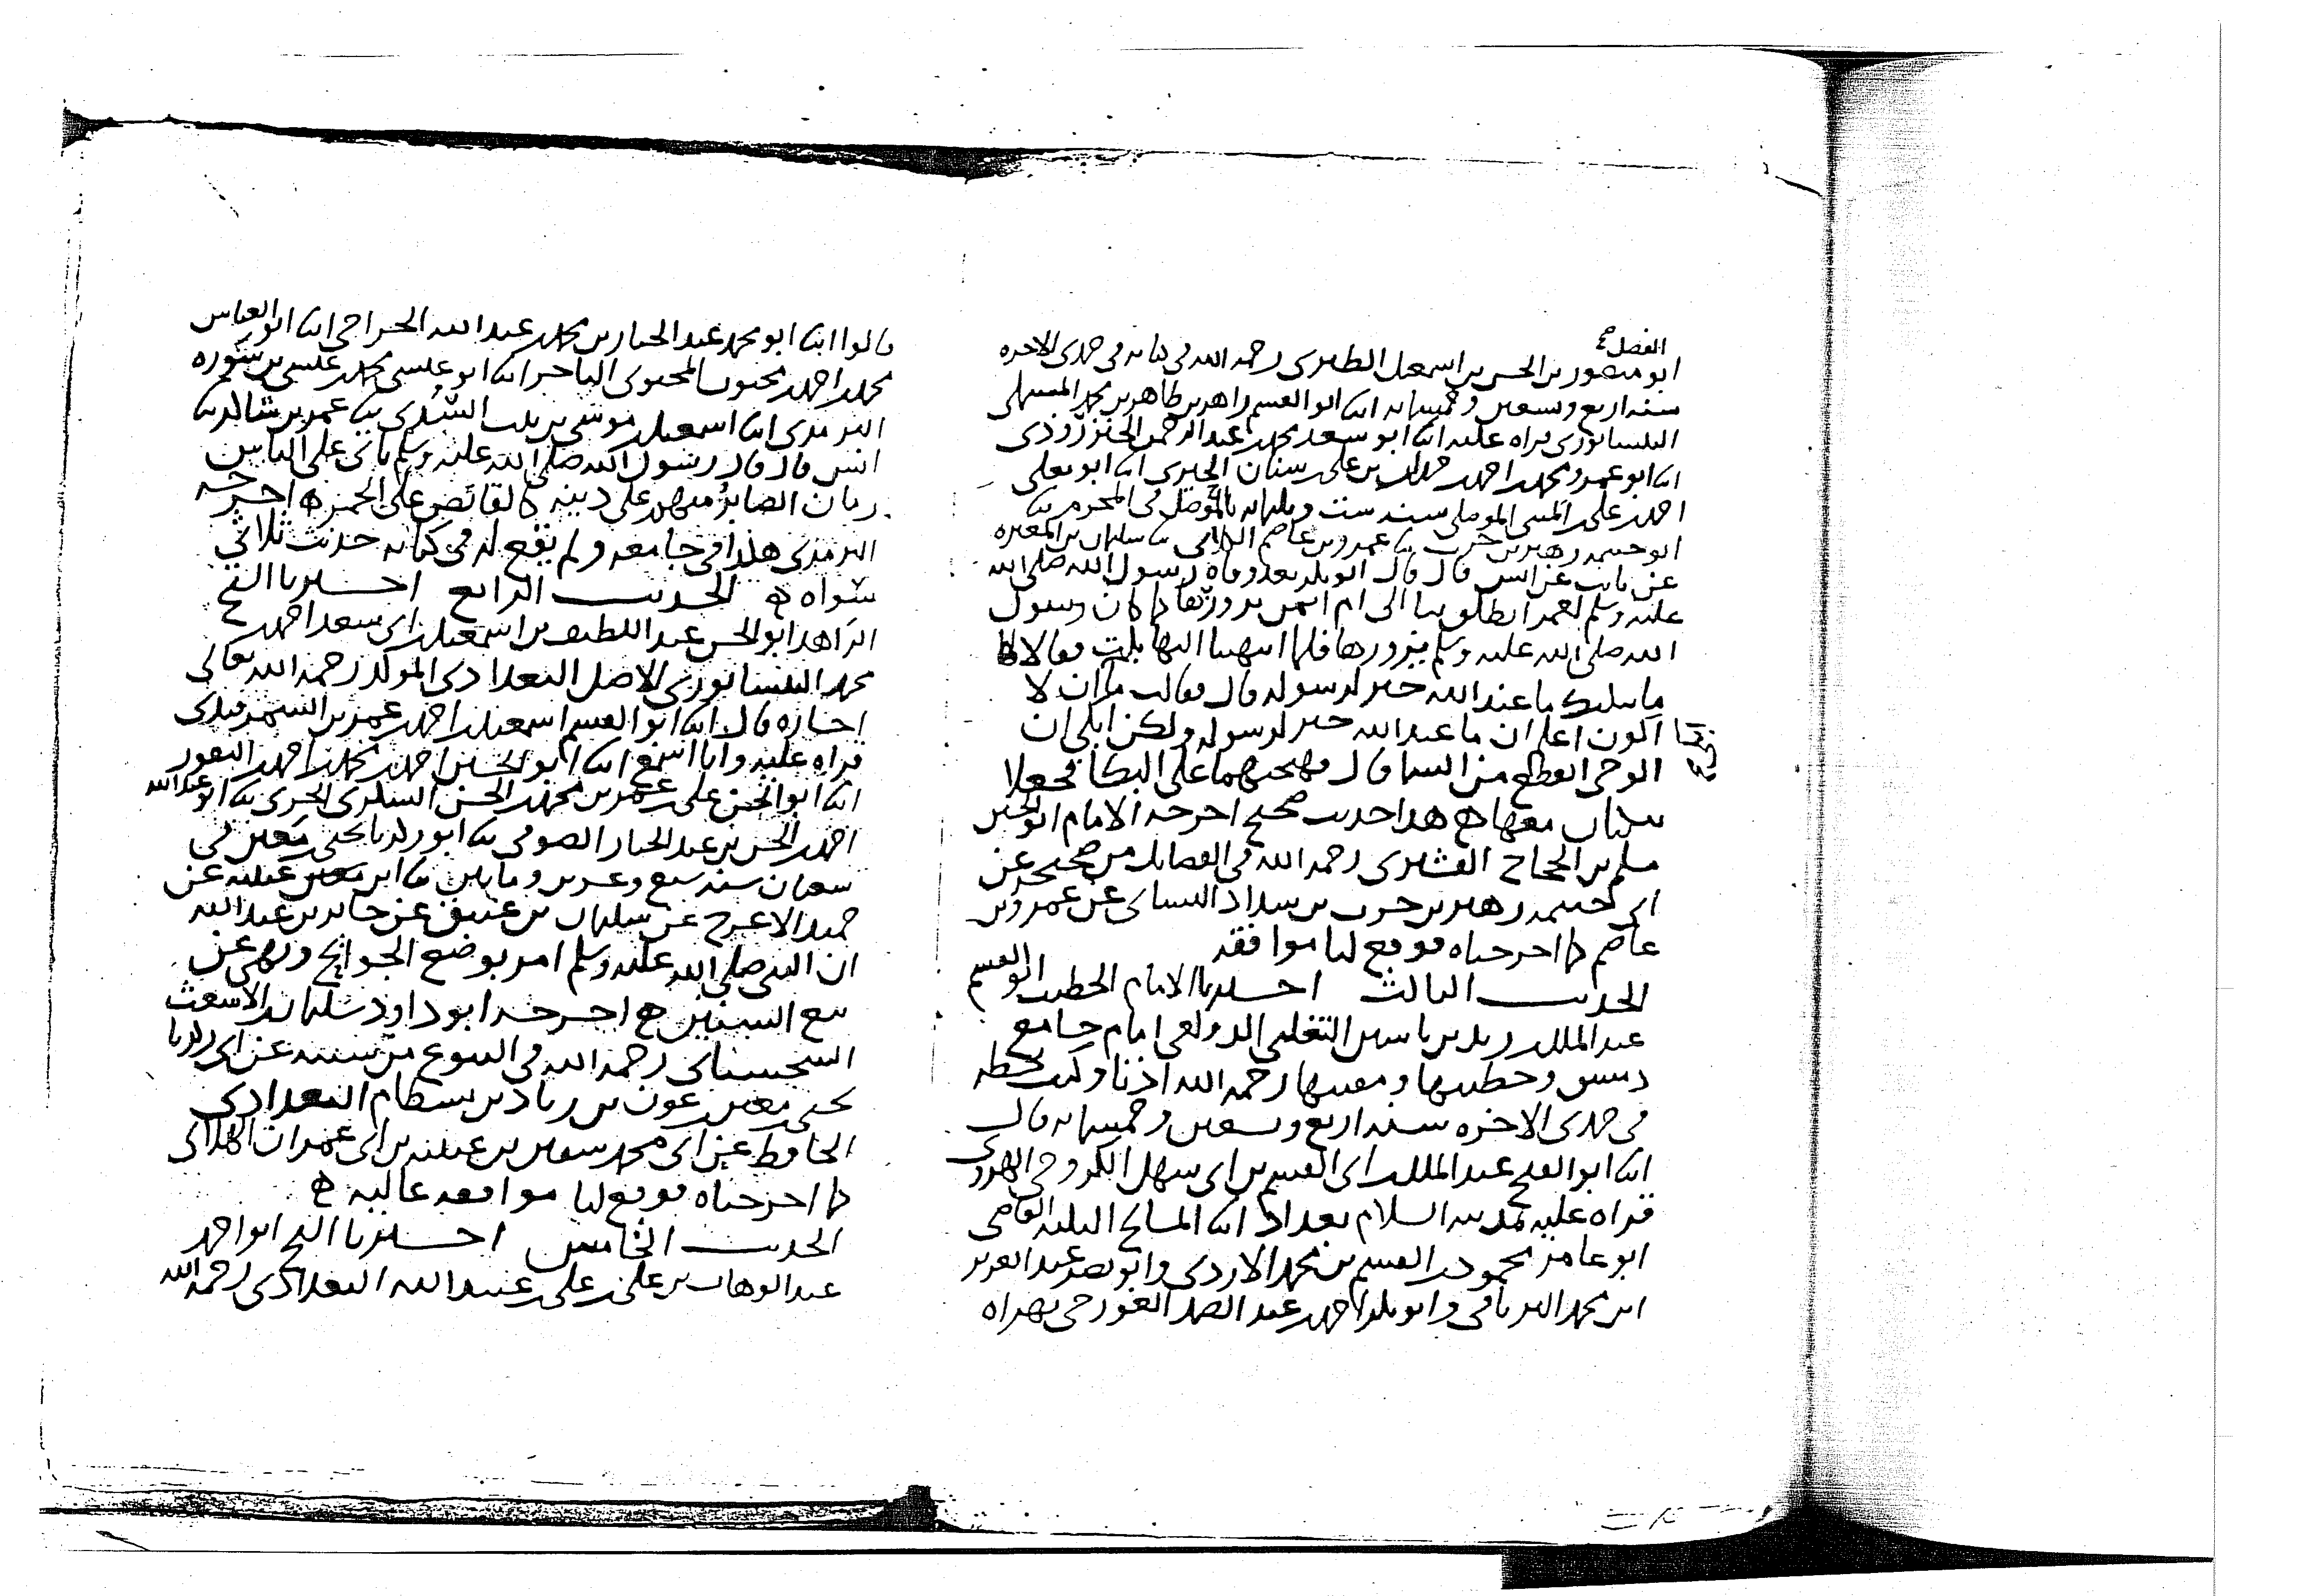 الفضل
ابو منصور بن الحسن بن اسمعيل الطبري رحمه الله في كتابه في جمدى الاخره
سنه اربع وتسعين وخمسمايه انبا ابو القسم زاهر بن طاهر بن محمد المستملي
النيسابوري قراه عليه انبا ابو سعد محمد بن عبد الرحمن الجنزروذي
انبا ابو عمرو محمد بن احمد بن حمدان بن علي بن سنان الحيري انبا ابو يعلى
احمد بن علي بن المثنى الموصلي سنه ست وثلثمايه بالموصل في المحرم ثنا
ابو خيثمه زهير بن حرب ثنا عمرو بن عاصم الكلابي ثنا سليمان بن المغيره
عن ثابت عن انس قال قال ابو بكر بعد وفاه رسول الله صلى الله
عليه وسلم لعمر انطلق بنا الى ام ايمن نزورها كما كان رسول
الله صلى الله عليه وسلم يزورها فلما انتهينا اليها بكت فقالا لها
ما يبكيك ما عند الله خير لرسوله قال فقالت ما ان لا
اكون اعلم ان ما عند الله خير لرسوله ولكن ابكي ان
الوحي انقطع من السما قال فهيجتهما على البكا فجعلا
يبكيان معها ه هذا حديث صحيح اخرجه الامام ابو الحسين
مسلم بن الحجاج القشيري رحمه الله في الفضايل من صحيحه عن
ابي خيثمه زهير بن حرب بن شداد النسائي عن عمرو بن
عاصم كما اخرجناه فوقع لنا موافقه
الحديث الثالث اخبرنا الامام الخطيب ابو القسم
عبد الملك بن زيد بن ياسين التغلبي الدولعي امام جامع
دمشق وخطيبها ومفتيها رحمه الله اذنا وكتب بخطه
في جمدى الاخره سنه اربع وتسعين وخمسمايه قال
انبا ابو الفتح عبد الملك بن ابي القسم بن ابي سهل الكروخي الهروي
قراه عليه بمدينه السلام بغداد انبا المشايخ الثلثه القاضي
ابو عامر محمود بن القسم بن محمد الازدي وابو نصر عبد العزيز
ابن محمد الترياقي وابو بكر احمد بن عبد الصمد الغورجي بهراه
قالوا انبا ابو محمد عبد الجبار بن محمد بن عبد الله الجراحي انبا ابو العباس
محمد بن احمد بن محبوب المحبوبي التاجر انبا ابو عيسى محمد بن عيسى بن سوره
الترمذي انبا اسمعيل بن موسى بن بنت السدي ثنا عمر بن شاكر ثنا
انس قال قال رسول الله صلى الله عليه وسلم ياتي على الناس
زمان الصابر منهم على دينه كالقابض على الجمره اخرجه
الترمذي هكذا في جامعه ولم يقع له في كتابه حديث ثلاثي
سواه ه الحديث الرابع اخبرنا الشيخ
الزاهد ابو الحسن عبد اللطيف بن اسمعيل بن ابي سعد احمد بن
محمد النيسابوري الاصل البغدادي المولد رحمه الله تعالى
اجازه قال انبا ابو القسم اسمعيل بن احمد بن عمر بن السمرقندي
قراه عليه وانا اسمع انبا ابو الحسين احمد بن محمد بن احمد بن النقور
انبا ابو الحسن علي بن عمر بن محمد بن الحسن السكري الحربي ثنا ابو عبد الله
احمد بن الحسن بن عبد الجبار الصوفي ثنا ابو زكريا يحيى بن معين في
شعبان سنه سبع وعشرين ومايتين ثنا ابن عيينه عن
حميد الاعرج عن سليمان بن عتيق عن جابر بن عبد الله
ان النبي صلى الله عليه وسلم امر بوضع الجوايح ونهى عن
بيع السنين ه اخرجه ابو داود سليمان بن الاشعث
السجستاني رحمه الله في البيوع من سننه عن ابي زكريا
يحيى بن معين بن عون بن زياد بن بسطام البغدادي
الحافظ عن ابي محمد سفين بن عيينه بن ابي عمران الهلالي
كما اخرجناه فوقع لنا موافقه عاليه ه
الحديث الخامس اخبرنا الشيخ ابو احمد
عبد الوهاب بن علي بن علي بن عبيد الله البغدادي رحمه الله